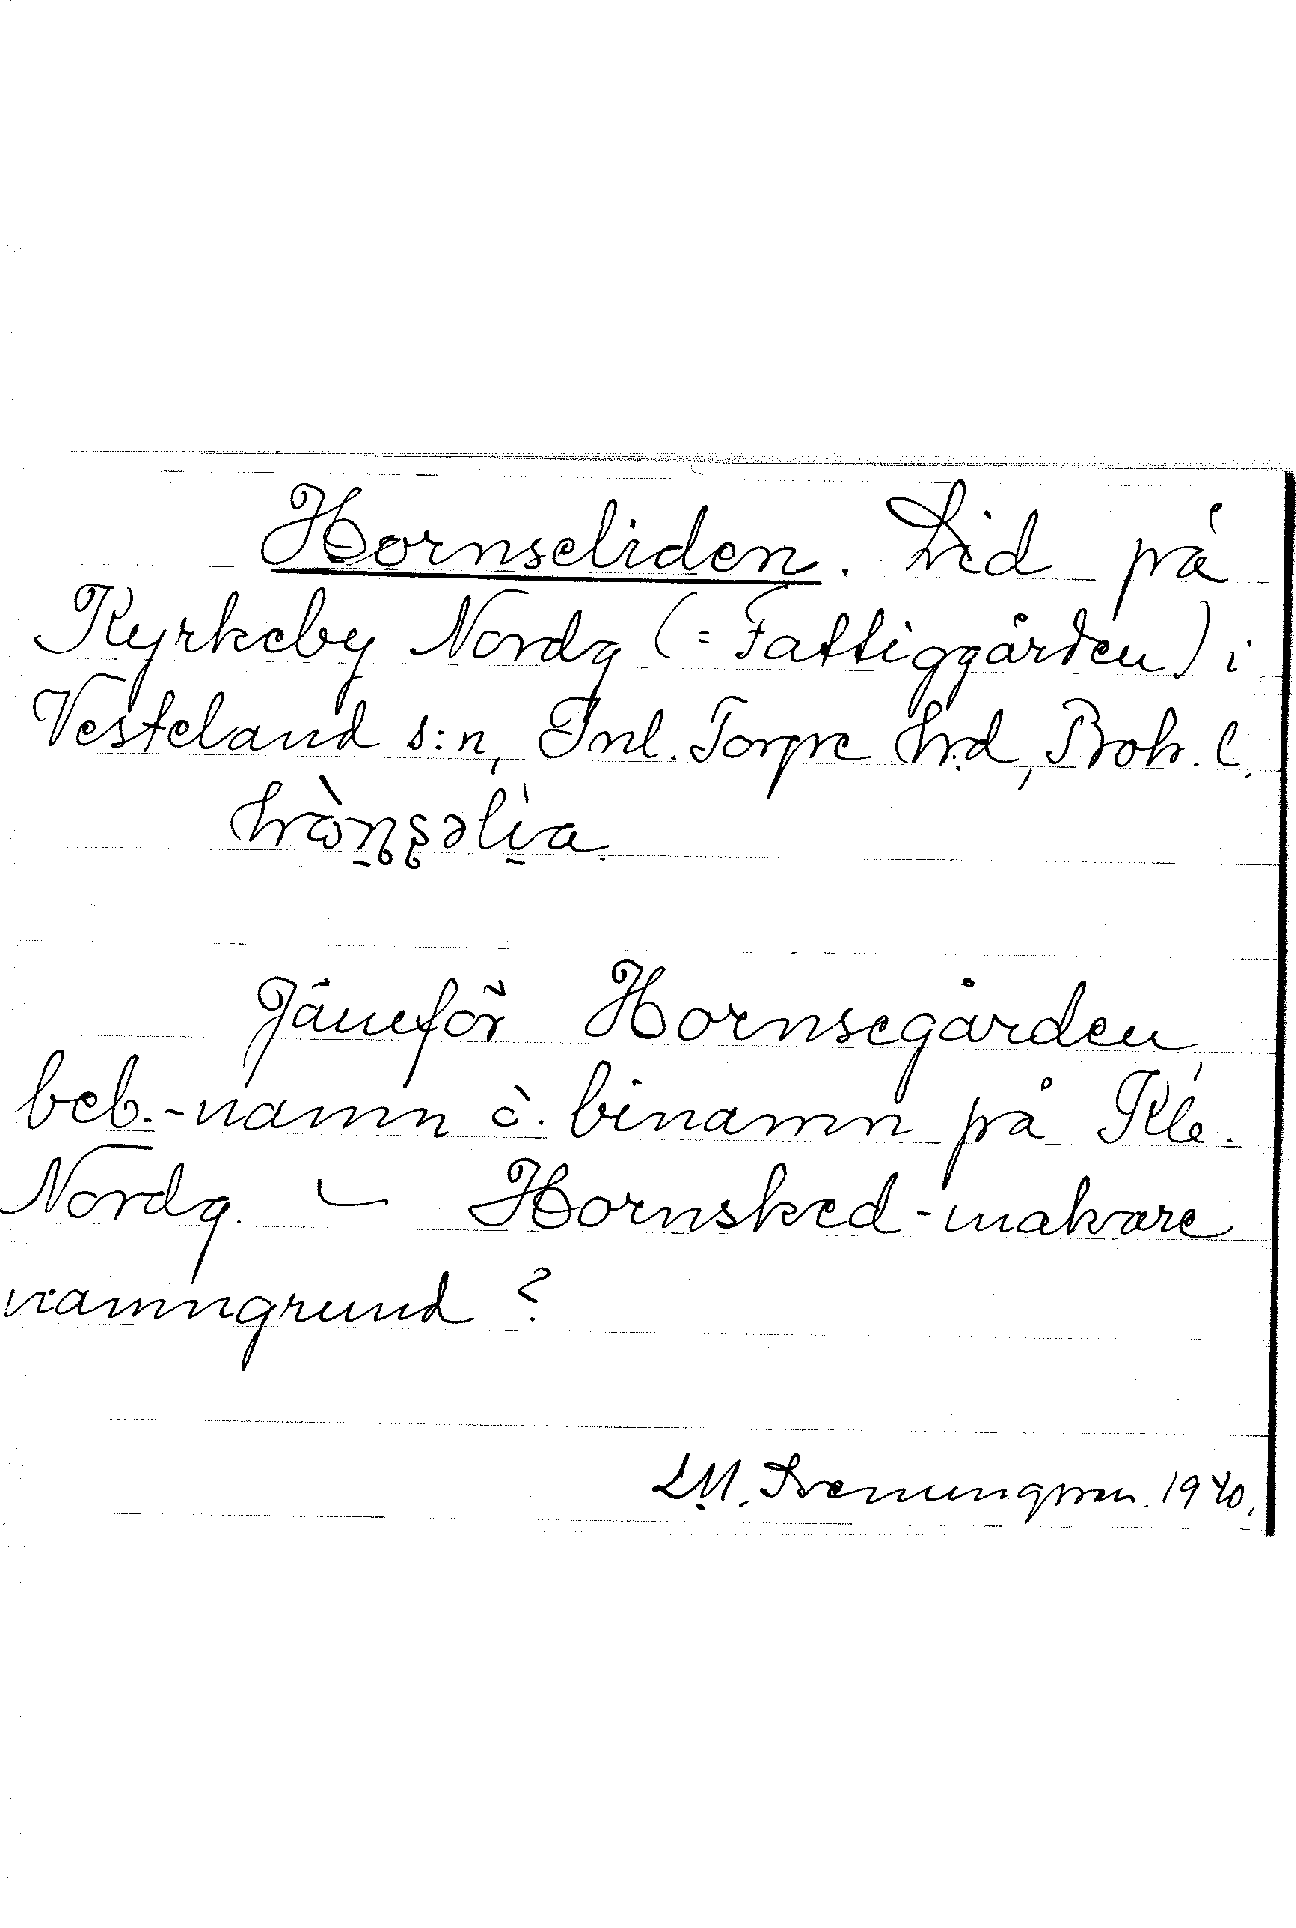 Hornseliden. Lid på
Kyrkeby Nordg (= Fattiggården) i
Vesteland s:n, Inl. Torpe hrd, Boh. l.
Jämför Hornsegården
beb.-namn o. binamn på K[...]
Nordg. – Hornsked-makare
namngrund?
1940.